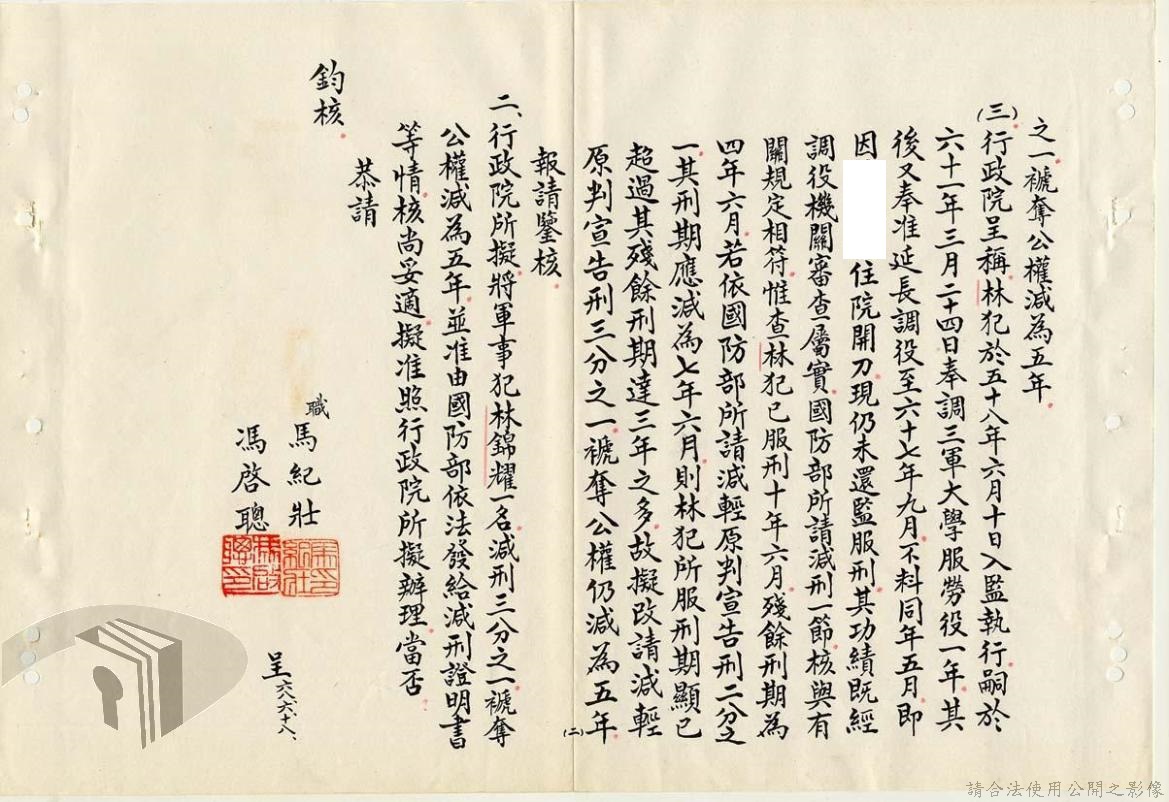 之一褫奪公權減為五年。
㈢行政院呈稱林犯於五十八年六月十日入監執行嗣於
六十一年三月二十四日奉調三軍大學服勞役一年。其
後又奉准延長調役至六十七年九月。不料同年五月。即
因
住院開刀現仍未還監服刑。其功績既經
調役機關審查屬實。國防部所請減刑一節。核與有
關規定相符。惟查林犯已服刑十年六月。殘餘刑期為
四年六月。若依國防部所請減輕原判宣告刑二分之
一。其刑期應減為七年六月。則林犯所服刑期顯已
超過其殘餘刑期達三年之多。故擬改請減輕
原判宣告刑三分之一。褫奪公權仍減為五年。
㈡
報請鑒核。
二、行政院所擬將軍事犯林錦耀一名。減刑三分之一。褫奪
公權減為五年。並准由國防部依法發給減刑證明書
等情。核尚妥適。擬准照行政院所擬辦理。當否?
恭請
鈞核。
職馬紀壯
馮啓聰
呈六八、六、十八、
請合法使用公開之影像